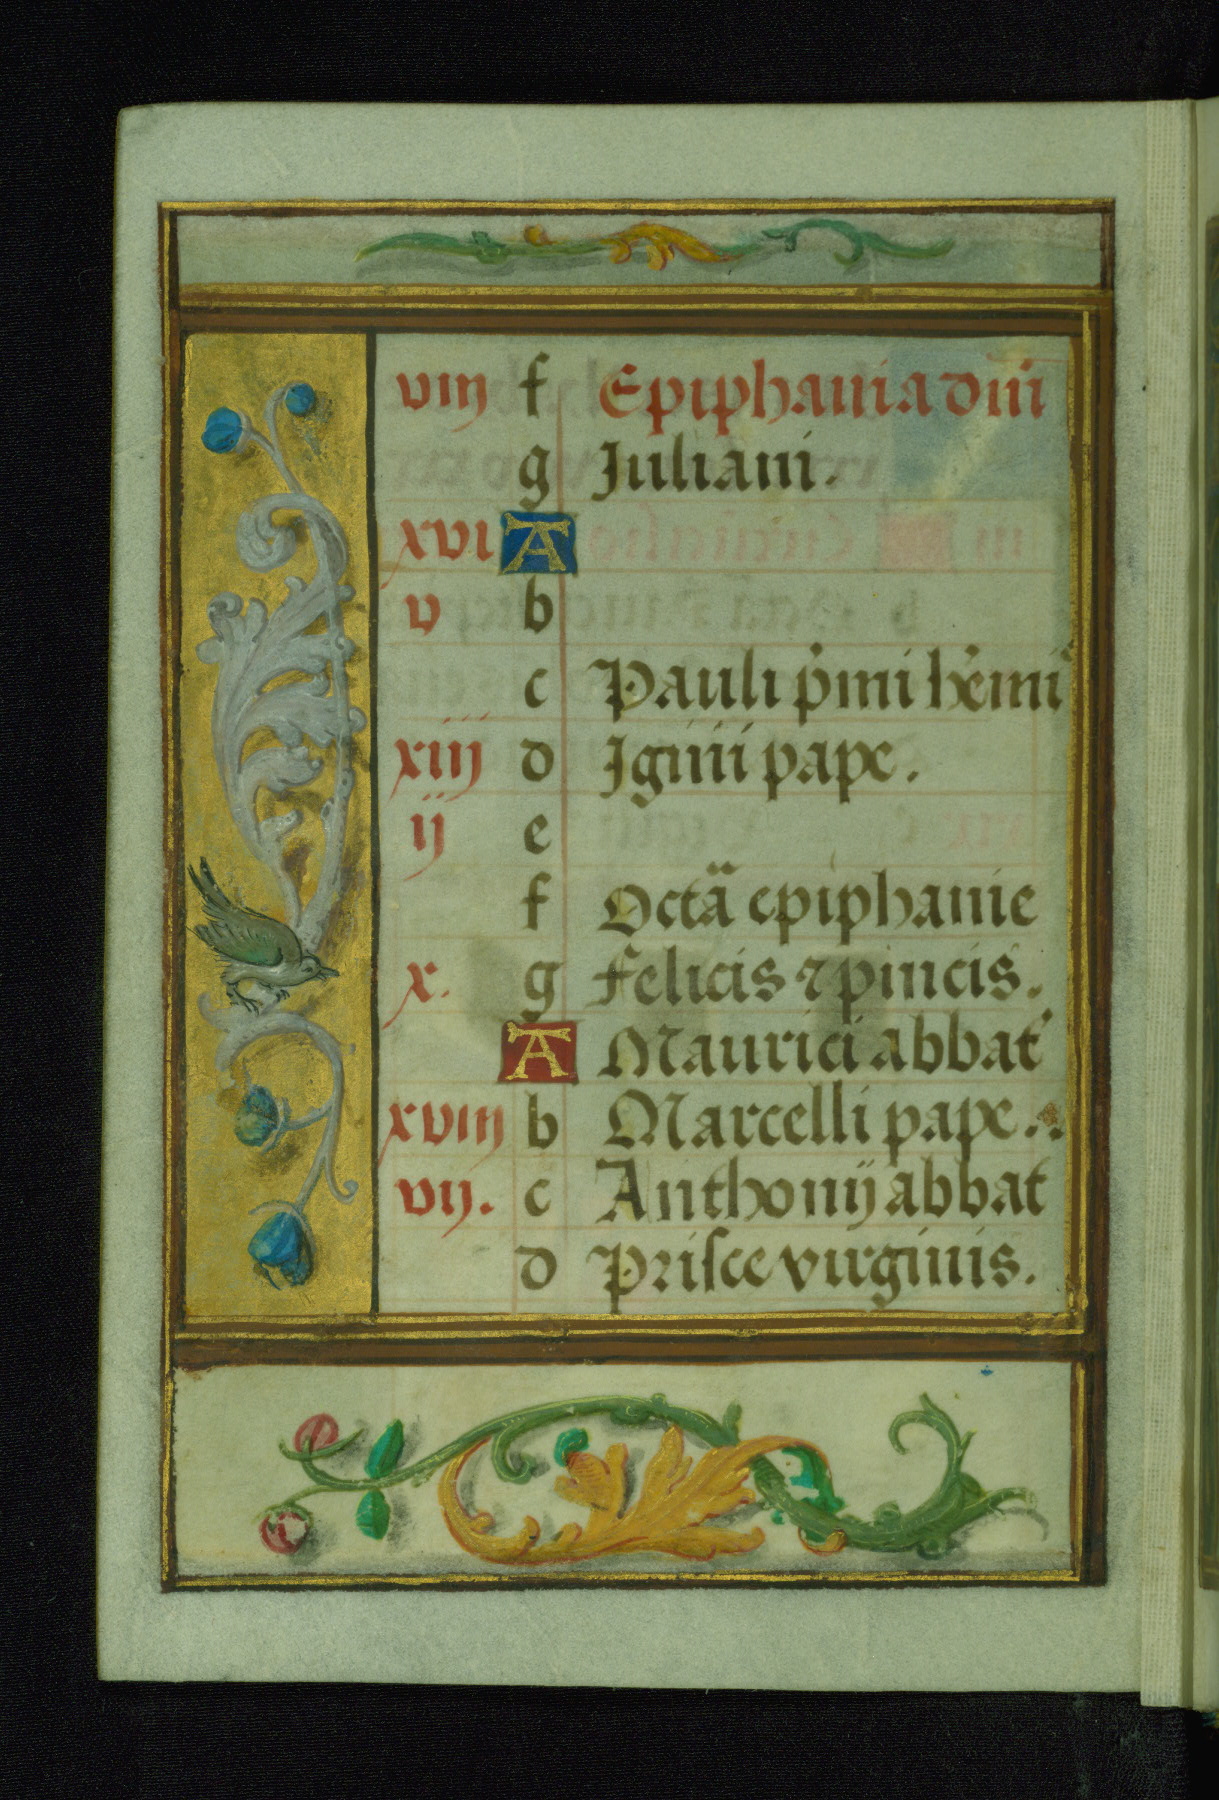 viij f Epiphania dni
g Juliani.
xvi A
v b
c Pauli pmi hemi
xiij d Iginii pape.
ij e
f Octa epiphanie
x. g Felicis ⁊ pincis.
A Maurici abbat
xviij b Marcelli pape..
vij. c Anthonij abbat
d Prisce virginis.